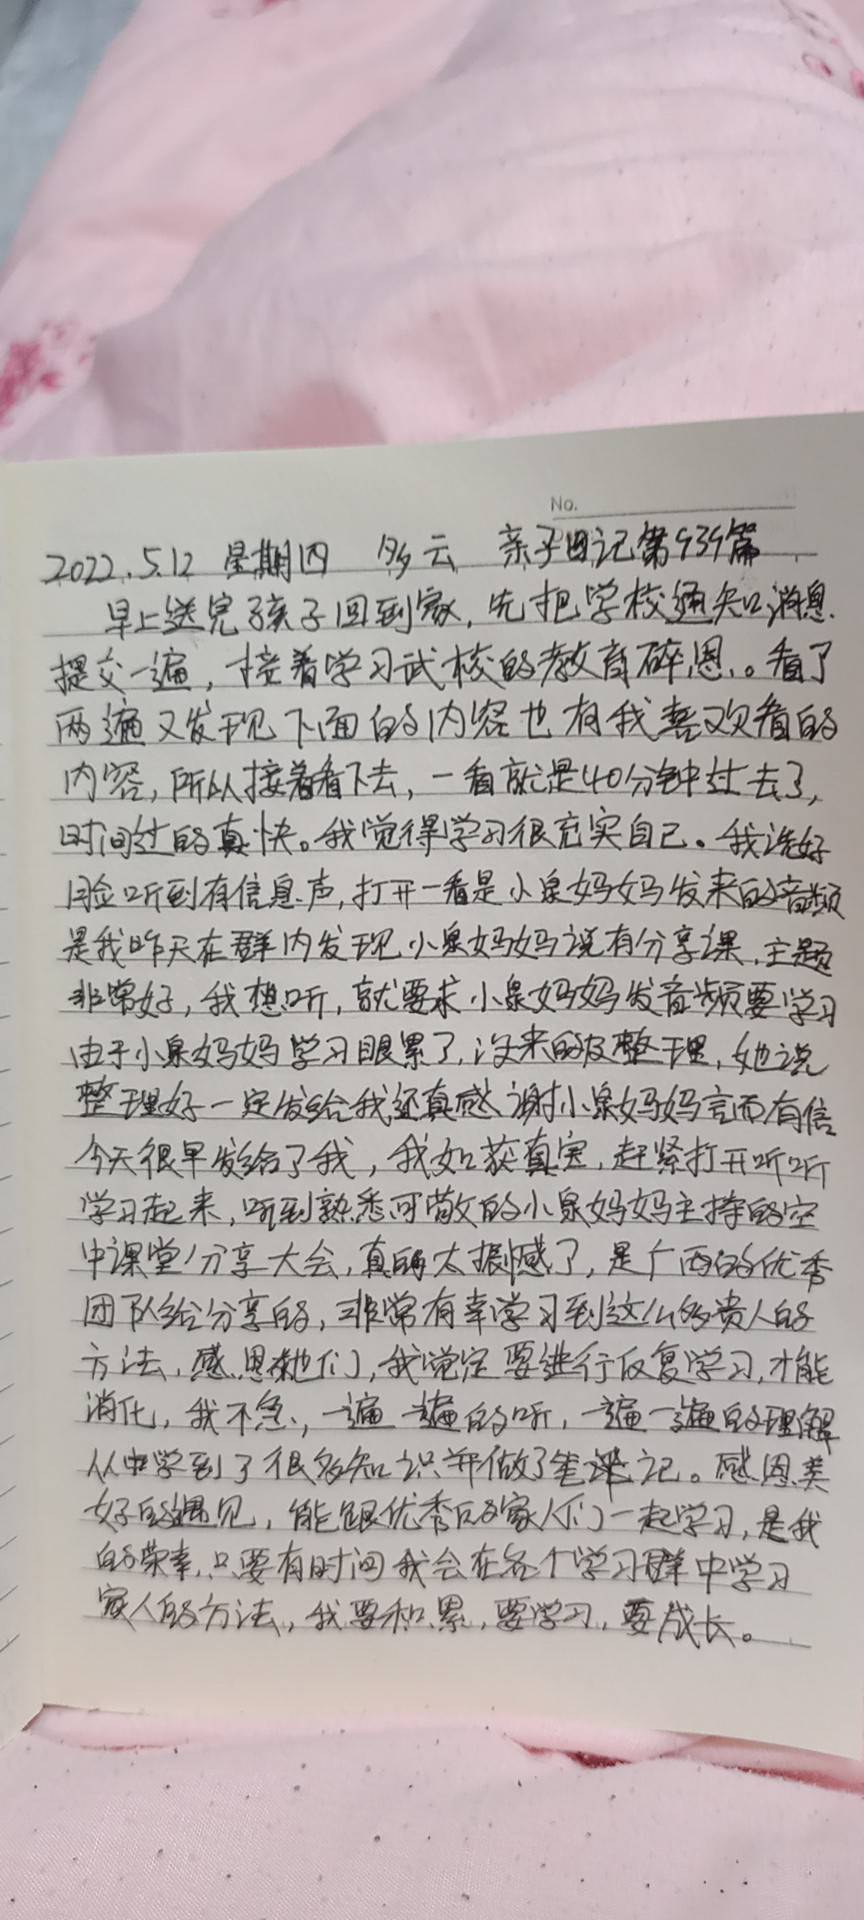 No.
2022.5.12 星期四 多云 亲子日记第939篇
早上送完孩子回到家，先把学校通知消息
提交一遍，接着学习武校的教育碎思。看了
两遍又发现下面的内容也有我喜欢看的
内容，所以接着看下去，一看就是40分钟过去了，
时间过的真快。我觉得学习很充实自己。我洗好
脸听到有信息声，打开一看是小泉妈妈发来的音频
是我昨天在群内发现小泉妈妈说有分享课，主题
非常好，我想听，就要求小泉妈妈发音频要学习
由于小泉妈妈学习眼累了，没来的及整理，她说
整理好一定发给我还真感谢小泉妈妈言而有信
今天很早发给了我，我如获真宝，赶紧打开听听
学习起来，听到熟悉可敬的小泉妈妈主持的空
中课堂分享大会，真的太振憾了，是广西的优秀
团队给分享的，非常有幸学习到这么多贵人的
方法，感恩她们，我觉定要进行反复学习，才能
消化，我不急，一遍一遍的听，一遍一遍的理解
从中学到了很多知识并做了笔记。感恩美
好的遇见，能跟优秀的家人们一起学习，是我
的荣幸，只要有时间我会在各个学习群中学习
家人的方法，我要积累，要学习，要成长。